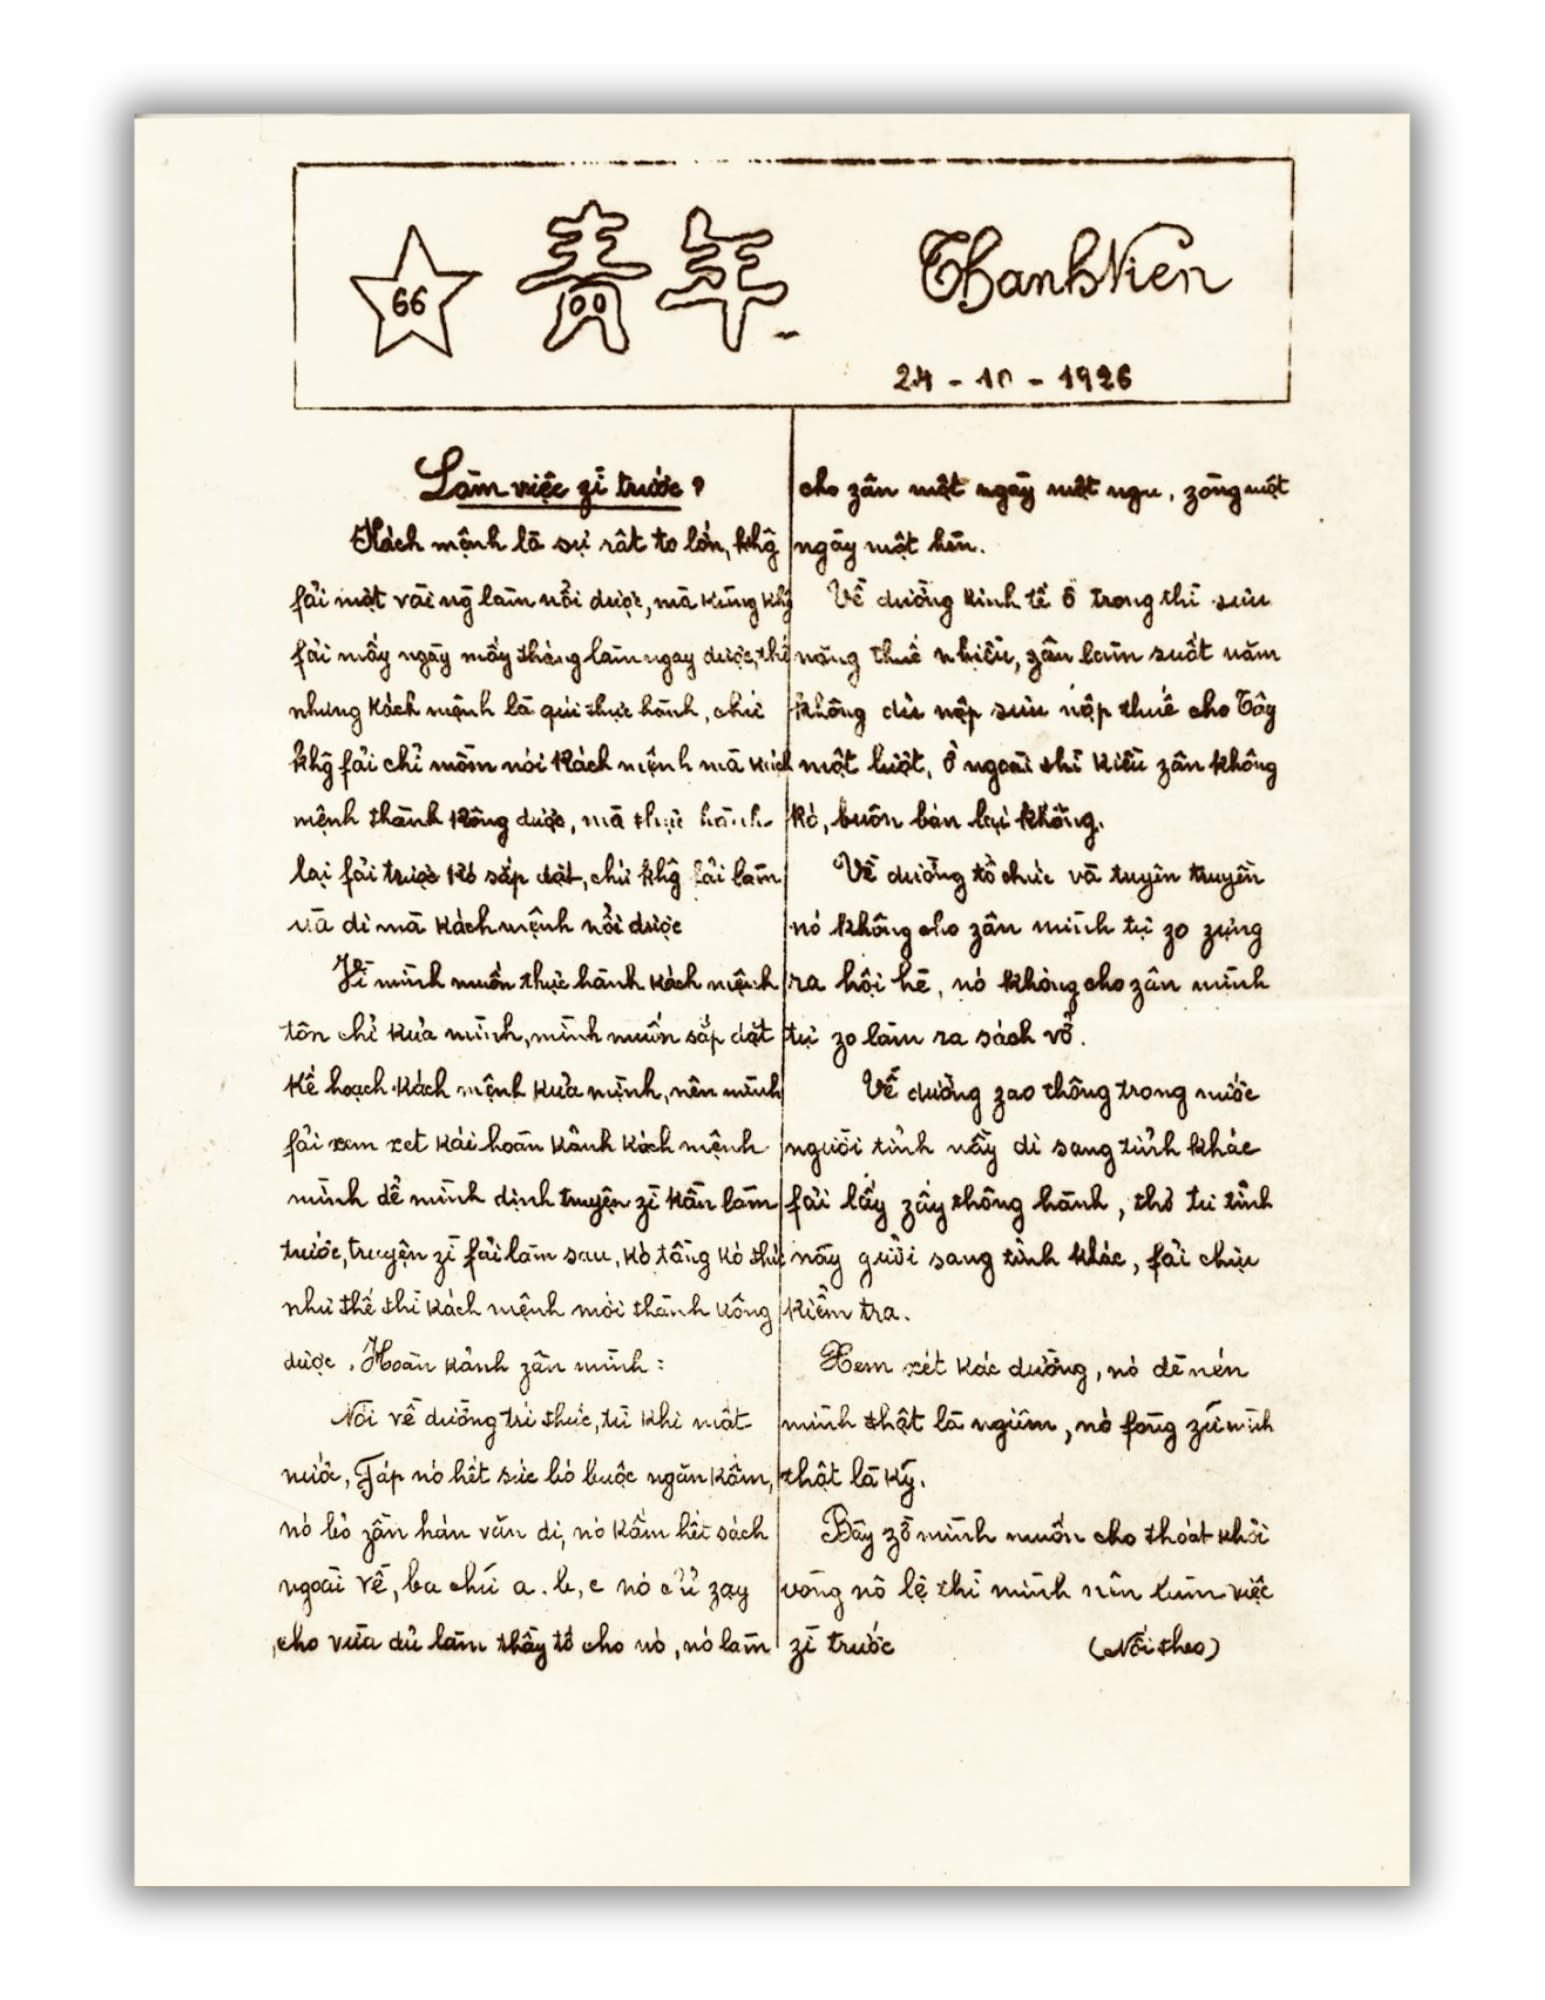 66 青年 Thanh Niên
24 - 10 - 1926
Làm việc zì trước?
Kách mệnh là sự rất to lớn, khg̃
fải một vài ng̃ làm nổi được, mà kũng khg̃
fải mấy ngày mấy tháng làm ngay được, thế
nhưng kách mệnh là quí thực hành, chứ
khg̃ fải chỉ mồm nói kách mệnh mà kách
mệnh thành kông được, mà thực hành
lại fải trước kó sắp đặt, chứ khg̃ fải làm
và đi mà kách mệnh nổi được
Vì mình muốn thực hành kách mệnh
tôn chỉ kủa mình, mình muốn sắp đặt
kế hoạch kách mệnh kủa mình, nên mình
fải xem xet kái hoàn kảnh kách mệnh
mình để mình định truyện zì kần làm
trước, truyện zì fải làm sau, kó tầng kó thứ
như thế thì kách mệnh mới thành kông
được. Hoàn kảnh zân mình:
Nói về đường trí thức, từ khi mất
nước, Fáp nó hết sức bó buộc ngăn kấm,
nó bỏ zần hán văn đi, nó kấm hết sách
ngoài về, ba chữ a. b, c nó chỉ zạy
cho vừa đủ làm thầy tớ cho nó, nó làm
cho zân một ngày một ngu, zòng một
ngày một hèn.
Về đường kinh tế ở trong thì sưu
nặng thuế nhiều, zân làm suốt năm
không đủ nộp sưu nộp thuế cho Tây
một lượt, ở ngoài thì kiều zân không
kó, buôn bán lại không.
Về đường tổ chức và tuyên truyền
nó không cho zân mình tự zo zựng
ra hội hè, nó không cho zân mình
tự zo làm ra sách vở.
Về đường zao thông trong nước
người tỉnh nầy đi sang tỉnh khác
fải lấy zấy thông hành, thơ từ tỉnh
nầy gưởi sang tỉnh khác, fải chịu
kiểm tra.
Xem xét kác đường, nó đè nén
mình thật là ngiêm, nó fòng zữ mình
thật là kỹ.
Bây zờ mình muốn cho thoát khỏi
vòng nô lệ thì mình nên làm việc
zì trước (Nối theo)